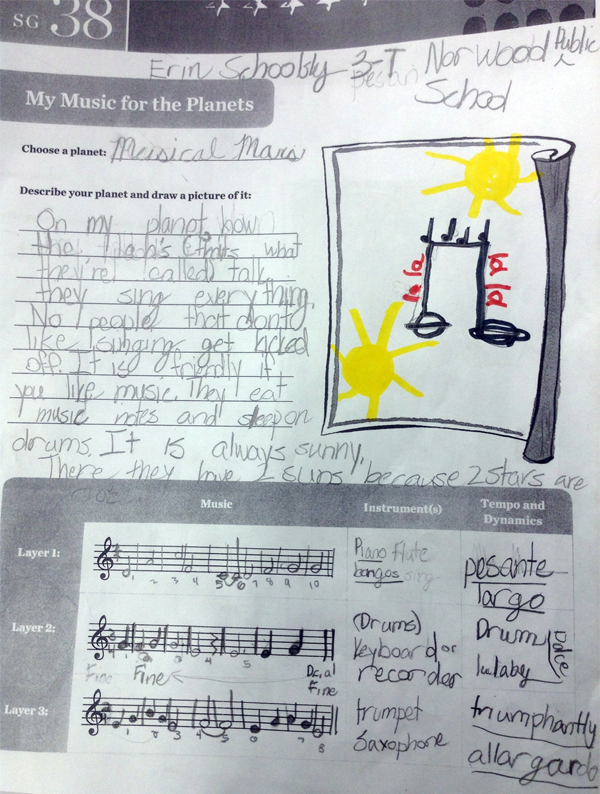 SG 38
Erin Schoobly 3-T Norwood Public
pesan
School
My Music for the Planets
Choose a planet: Meusical Mars
Describe your planet and draw a picture of it:
On my planet, how
the (thats what
they're called) talk,
they sing everything.
No people that don't
like singing get kicked
off. It is friendly if
you like music. They eat
music notes and sleep on
drums. It is always sunny.
There they have 2 suns because 2 stars are
la la
la la
Music Instrument(s) Tempo and Dynamics
Layer 1:
1 2 3 4 5 6 7 8 9 10
Piano Flute
bongos sing
pesante
largo
Layer 2:
4 5
Fine Fine D.C. al Fine
(Drums)
keyboard or
recorder
Drum
lulaby
Dolce
Layer 3:
1 2 3 4 5 6 7 8
trumpet
Saxophone
triumphantly
allargando